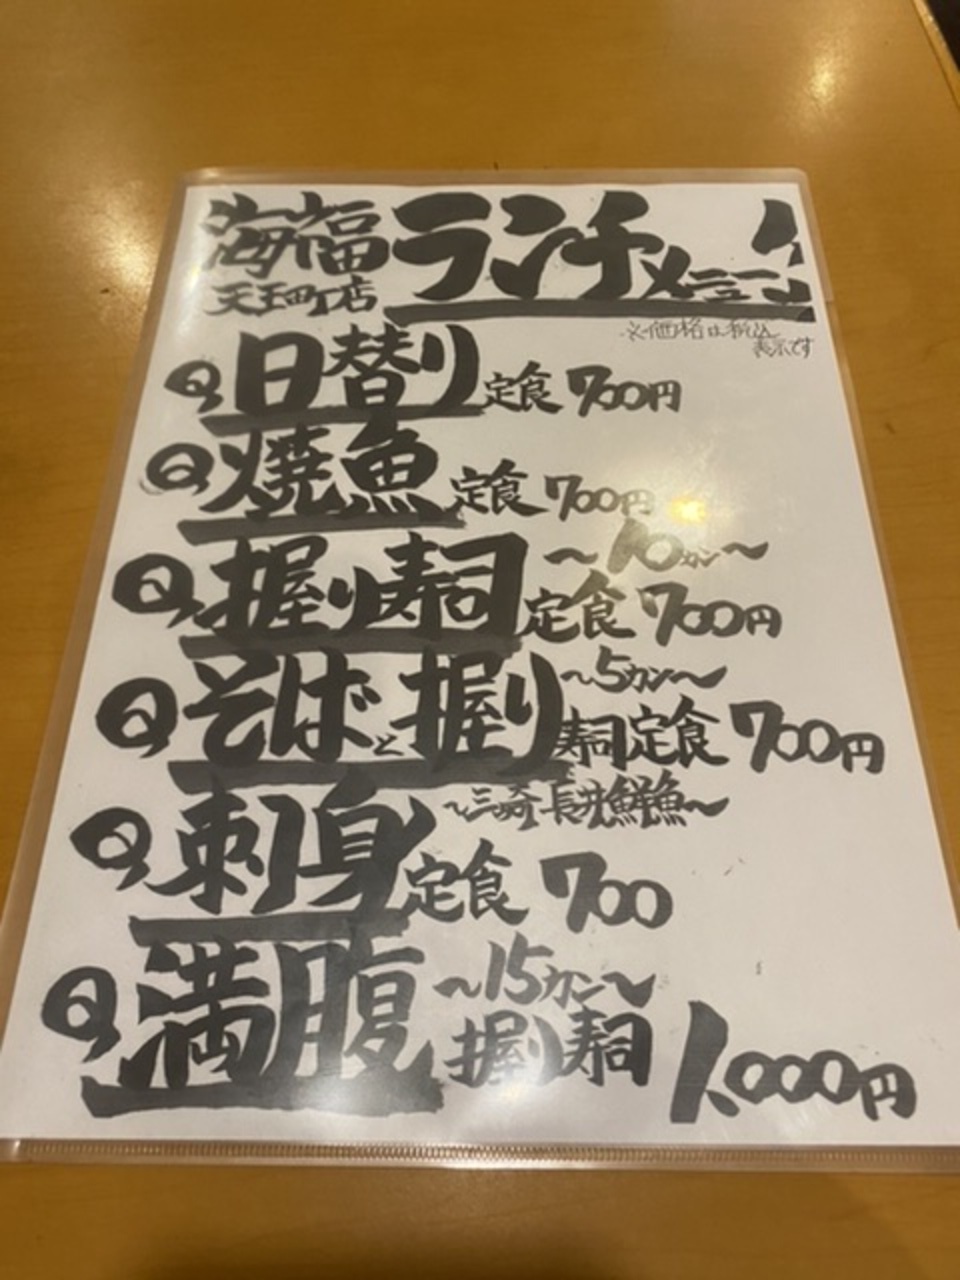 海福 ランチメニュー!
天王町店
※価格は税込
表示です
日替り定食 700円
焼魚定食 700円
〜10カン〜
握り寿司定食 700円
〜5カン〜
そばと握り寿司定食 700円
〜三崎長井鮮魚〜
刺身定食 700
〜15カン〜
満腹握り寿司 1,000円